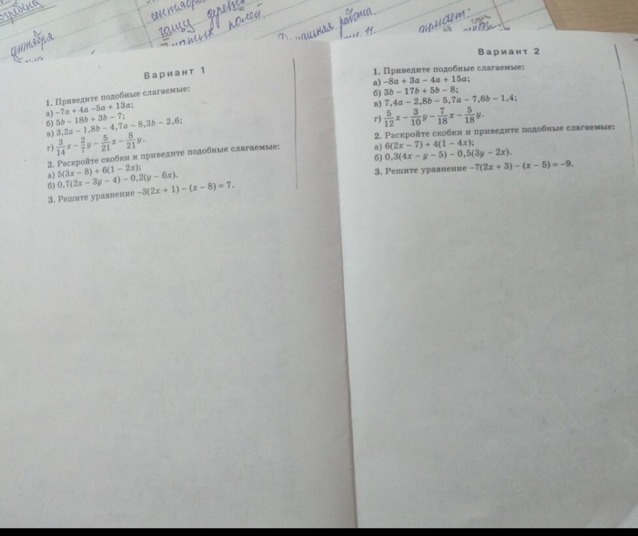 сентября
Домашняя работа.
Вариант 1
1. Приведите подобные слагаемые:
а) –7a + 4a –5a + 13a;
б) 5b – 18b + 3b – 7;
в) 3,2a – 1,8b – 4,7a – 8,3b – 2,6;
г) 3/14 x – 2/7 y – 5/21 x – 8/21 y.
2. Раскройте скобки и приведите подобные слагаемые:
а) 5(3x – 8) + 6(1 – 2x);
б) 0,7(2x – 3y – 4) – 0,2(y – 6x).
3. Решите уравнение –3(2x + 1) – (x – 8) = 7.
Вариант 2
1. Приведите подобные слагаемые:
а) –8a + 3a – 4a + 15a;
б) 3b – 17b + 5b – 8;
в) 7,4a – 2,8b – 5,7a – 7,6b – 1,4;
г) 5/12 x – 3/10 y – 7/18 x – 5/18 y.
2. Раскройте скобки и приведите подобные слагаемые:
а) 6(2x – 7) + 4(1 – 4x);
б) 0,3(4x – y – 5) – 0,5(3y – 2x).
3. Решите уравнение –7(2x + 3) – (x – 5) = –9.